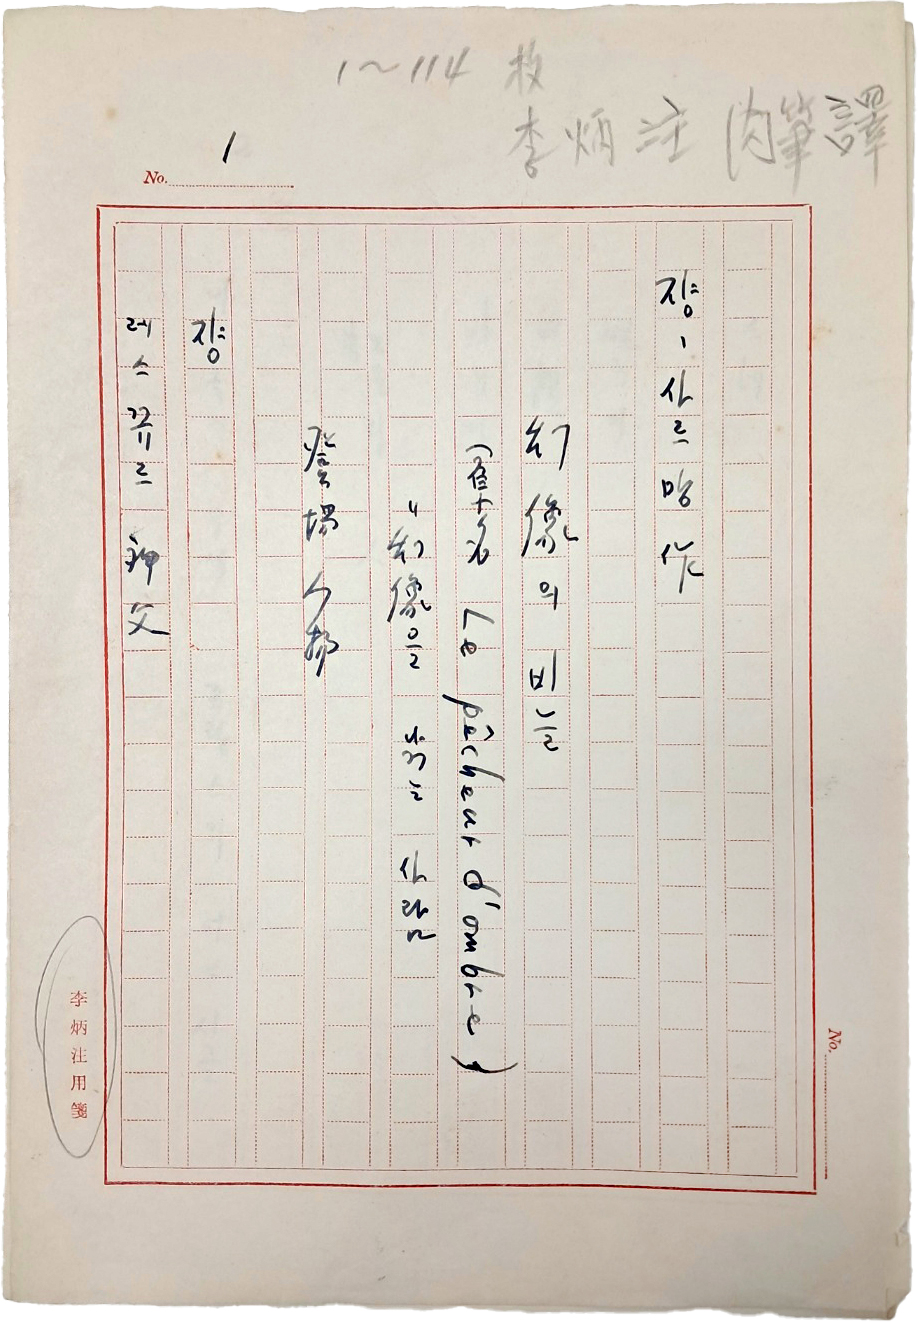 1~114 枚
李炳注 肉筆譯
No. 1
쟝、사르망 作
幻像의 비늘
(原名 Le pêcheur d'ombre)
〃幻像을 낚는 사람
登場人物
쟝
레스뀨르 神父
李炳注用箋
No.